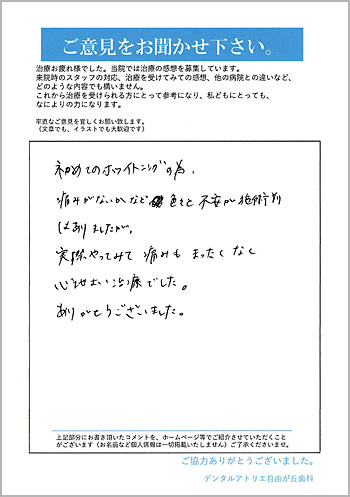 ご意見をお聞かせ下さい。
治療お疲れ様でした。当院では治療の感想を募集しています。
来院時のスタッフの対応、治療を受けてみての感想、他の病院との違いなど、
どのような内容でも構いません。
これから治療を受けられる方にとって参考になり、私どもにとっても、
なによりの力になります。
率直なご意見を宜しくお願い致します。
（文章でも、イラストでも大歓迎です）
初めてのホワイトニングの為、
痛みがないかなど 色々と不安が施術前
はありましたが、
実際やってみて痛みもまったくなく
心地よい治療でした。
ありがとうございました。
上記部分にお書き頂いたコメントを、ホームページ等でご紹介させていただくこと
がございます（お名前など個人情報は一切掲載いたしません）ご了承くださいませ。
ご協力ありがとうございました。
デンタルアトリエ自由が丘歯科